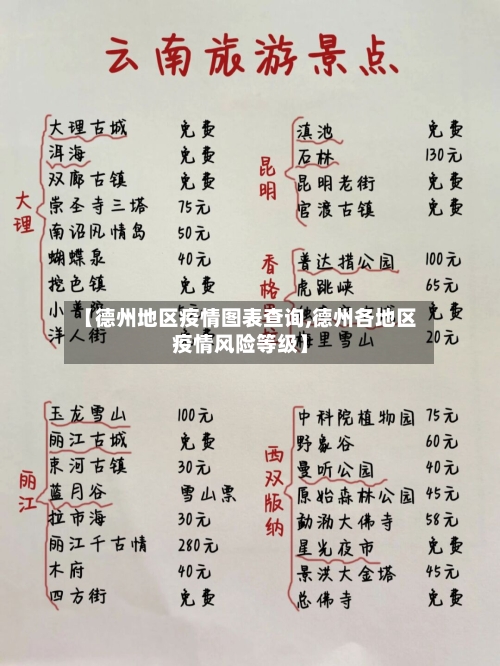 云南旅游景点
大理
大理古城 免费
洱海 免费
双廊古镇 免费
崇圣寺三塔 75元
南诏风情岛 50元
蝴蝶泉 40元
挖色镇 免费
小普陀
洋人街 免费
昆明
滇池 免费
石林 130元
昆明老街 免费
官渡古镇 免费
香格里
普达措公园 100元
虎跳峡 65元
梅里雪山 20元
【德州地区疫情图表查询,德州各地区
疫情风险等级】
丽江
玉龙雪山 100元
丽江古城 免费
束河古镇 30元
蓝月谷 雪山票
拉市海 30元
丽江千古情 280元
木府 40元
四方街 免费
西双版纳
中科院植物园 75元
野象谷 60元
曼听公园 40元
原始森林公园 45元
勐泐大佛寺 58元
星光夜市 免费
景洪大金塔 45元
总佛寺 免费